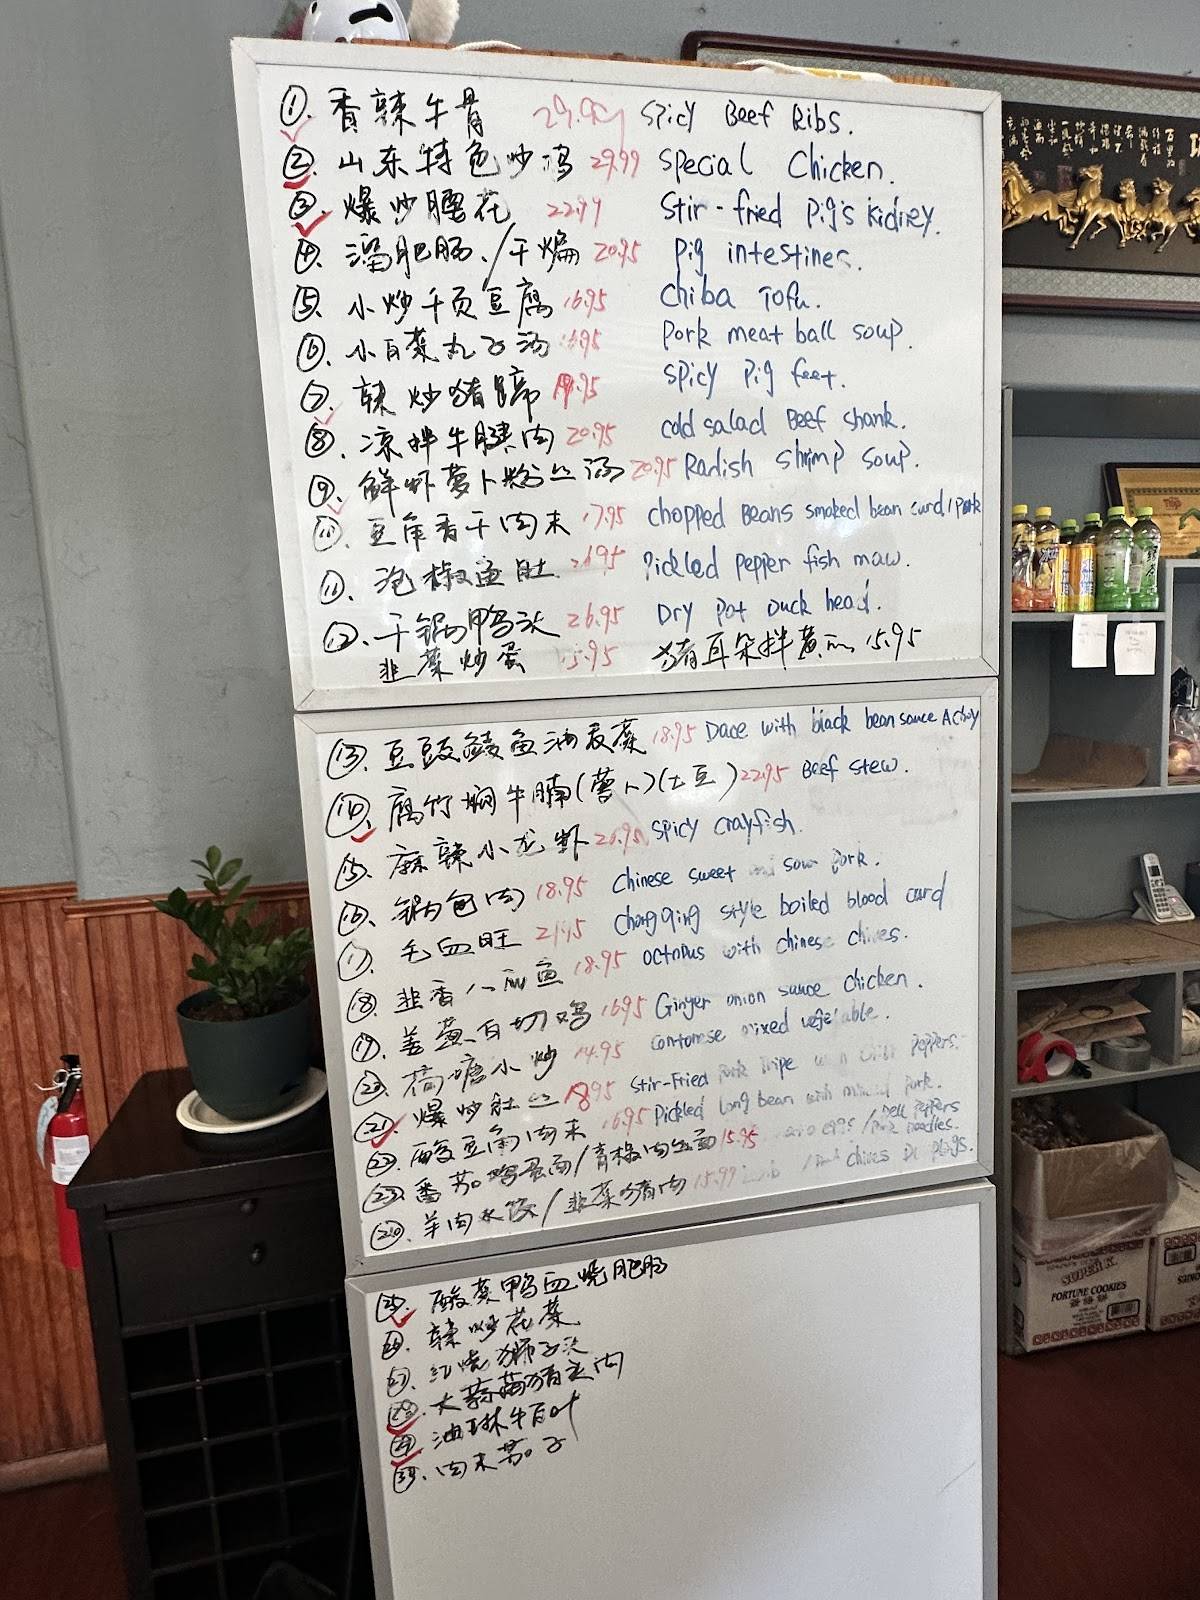 ①. 香辣牛骨 29.99 Spicy Beef Ribs.
②. 山东特色炒鸡 29.99 Special Chicken.
③. 爆炒腰花 22.99 Stir-fried Pig's Kidney.
④. 溜肥肠/干煸 20.95 Pig intestines.
⑤. 小炒千页豆腐 16.95 Chiba Tofu.
⑥. 小白菜丸子汤 16.95 Pork meat ball soup.
⑦. 辣炒猪蹄 19.95 Spicy Pig feet.
⑧. 凉拌牛腱肉 20.95 cold salad Beef shank.
⑨. 鲜虾萝卜粉丝汤 20.95 Radish shrimp soup.
⑩. 豆角香干肉末 17.95 chopped Beans smoked bean curd/pork
⑪. 泡椒鱼肚 26.95 Pickled pepper fish maw.
⑫. 干锅鸭头 26.95 Dry Pot Duck head.
韭菜炒蛋 15.95 猪耳朵拌黄瓜 15.95
⑬. 豆豉鲮鱼油麦菜 18.95 Dace with black bean sauce A choy
⑭. 腐竹焖牛腩(萝卜)(土豆) 22.95 Beef stew.
⑮. 麻辣小龙虾 20.95 Spicy crayfish.
⑯. 锅包肉 18.95 Chinese sweet and sour pork.
⑰. 毛血旺 21.95 Chongqing style boiled blood curd
⑱. 韭香八爪鱼 18.95 octopus with chinese chives.
⑲. 姜葱白切鸡 16.95 Ginger onion sauce chicken.
⑳. 荷塘小炒 14.95 Cantonese mixed vegetable.
㉑. 爆炒肚丝 18.95 Stir-Fried Pork Tripe with Chili Peppers.
㉒. 酸豆角肉末 16.95 Pickled long bean with minced pork.
㉓. 番茄鸡蛋面/青椒肉丝面 15.95 eggs / Bell Peppers Pork noodles.
㉔. 羊肉水饺/韭菜猪肉 15.99 Lamb / Pork chives
㉕. 酸菜鸭血烧肥肠
㉖. 辣炒花菜
㉗. 红烧狮子头
㉘. 大蒜猪头肉
㉙. 油淋牛百叶
㉚. 肉末茄子
SUPER K.
FORTUNE COOKIES